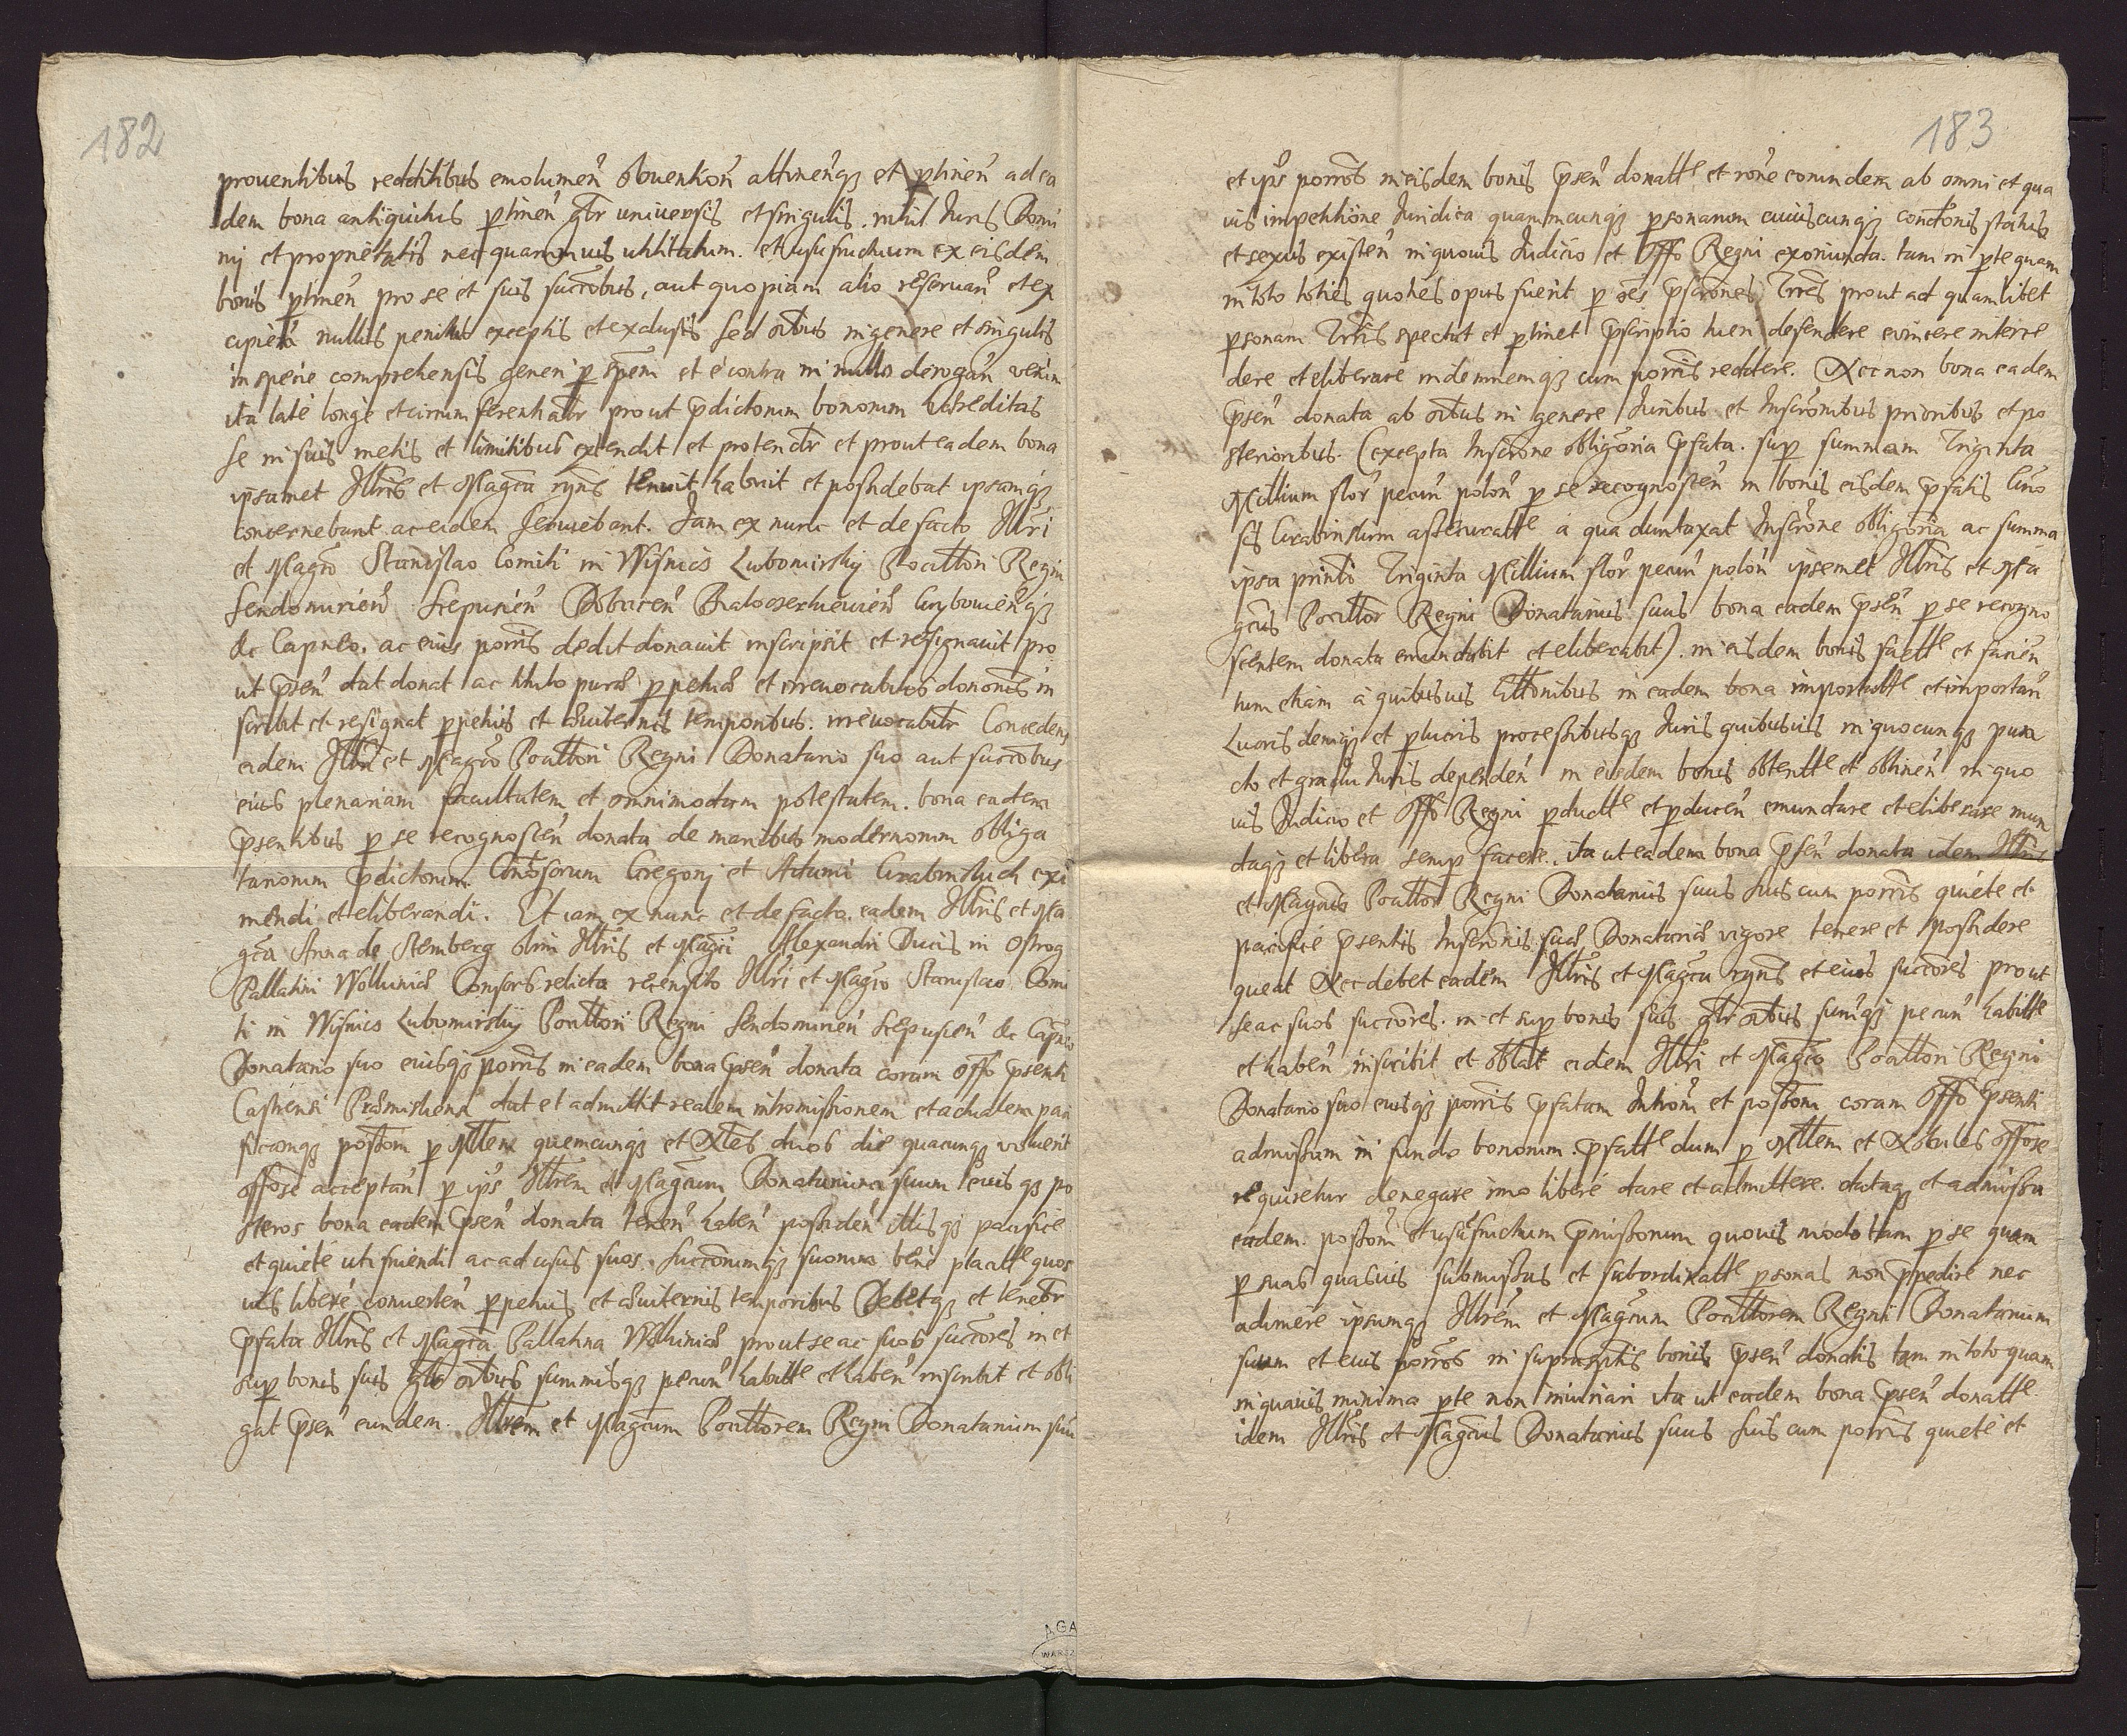 182
prouentibus redditibus emolumen obuention attinenq3 et ptinen ad ea
dem bona antiquitus ptinen gtr uniuersis et singulis. nihil Iuris Domi
nij et proprietatis nec quarumuis utilitatum. et usufructuum ex eisdem
bonis ptinen pro se et suis succoribus, aut quopiam alio reseruan et ex
cipien nullis penitus exceptis et exclusis sed oibus in genere et singulis
in specie comprehensis generi p spem et è contra in nullo derogan verum
ita late longè et circum ferentialr prout pdictorum bonorum haereditas
se in suis metis et limitibus extendit et protenditr et prout eadem bona
ipsamet Illris et Magca rgns tenuit habuit et possidebat ipsamq3
concernebant ac eidem seruiebant. Iam ex nunc et de facto Illri
et Magco Stanislao Comiti in Wisnicz Lubomirskij Pocillatori Regni
Sendomirien Scepusien Dobczcen Bialocerkiewien Grybouienq3
&c Capneo. ac eius porris dedit donauit inscripsit et resignauit pro
ut psen dat donat ac titulo purae ppetuae et irreuocabilis dononis in
scribit et resignat ppetuis et aeuiternis temporibus. irreuocabilr Concedens
eidem Illri et Magco Pocillatori Regni Donatario suo aut succoribus
eius plenariam facultatem et omnimodam potestatem. bona eadem
psentibus p se recognoscen donata de manibus modernorum obliga
tariorum pdictorum Gnosorum Gregorij et Adami Grabinskich exi
mendi et eliberandi. Et iam ex nunc et de facto. eadem Illris et Ma
gca Anna de Stemberg olim Illris et Magci Alexandri Ducis in Ostrog
Pallatini Wolhiniae Consors relicta recensito Illri et Magco Stanislao Comi
ti in Wisnicz Lubomirskij Pocillatori Regni Sendomirien Scepusien &c Capneo
Donatario suo eiusq3 porris in eadem bona psen donata coram Offo psenti
Castrensi Praemislien dat et admittit realem intromissionem et actualem paci
ficamq3 possom p Mltem quemcunq3 et Nles duos die quacunq3 voluerit
offose acceptan p ips Illrem et Magcum Donatarium suum eiusq3 po
steros bona eadem psen donata tenen haben possiden illisq3 pacificè
et quietè uti fruendi ac ad usus suos. Succorumq3 suorum benè placitt quos
uis liberè conuerten ppetuis et aeuiternis temporibus Debetq3 et tenebr
pfata Illris et Magca Pallatina Wolhiniae prout se ac suos succores in et
sup bonis suis gtr oibus summisq3 pecun habitt et haben inscribit et obli
gat psen eundem. Illrem et Magcum Pocillatorem Regni Donatarium suu
183
et ips porros in eisdem bonis psen donatt et rone eorundem ab omni et qua
uis impetitione Iuridica quarumcunq3 psonarum cuiuscunq3 condonis status
et sexus existen in quouis Iudicio et Offo Regni exoriunda. tam in pte quam
in toto toties quoties opus fuerit p oes pscrones Trres prout ad quamlibet
psonam Trris spectat et ptinet pscriptio tueri defendere euincere interce
dere et eliberare indemnemq3 cum porris reddere. Nec non bona eadem
psen donata ab oibus in genere Iuribus et Inscronibus prioribus et po
sterioribus. (excepta Inscrone obligoria pfata. sup summam Triginta
Millium flor pecun polon p se recognoscen in bonis eisdem pfatis Gno
sis Grabinskim assecuratt a qua duntaxat Inscrone obligoria ac summa
ipsa printi Triginta Millium flor pecun polon ipsemet Illris et Ma
gcus Pocillator Regni Donatarius suus bona eadem psen p se recogno
scentem donata emundabit et eliberabit). in eisdem bonis factt et facien
tum etiam à quibusuis Cittonibus in eadem bona importatt et importan
Lucris demiq3 et plucris processibusq3 Iuris quibusuis in quocunq3 pun
cto et gradu Iuris dependen in eisdem bonis obtentt et obtinen in quo
uis Iudicio et Offo Regni pductt et pducen emundare et eliberare mun
daq3 et libera semp facere. ita ut eadem bona psen donata idem Illris
et Magcus Pocillator Regni Donatarius suus suis cum porris quiete et
pacificè psentis Inscronis suae Donatariae vigore tenere et possidere
queat Nec debet eadem Illris et Magca rgns et eius succores prout
se ac suos succores. in et sup bonis suis gtr oibus sumq3 pecun habitt
et haben inscribit et oblat eidem Illri et Magco Pocillatori Regni
Donatario suo eiusq3 porris pfatam Introm et possom coram Offo psenti
admissam in fundo bonorum pfatt dum p Mltem et Nobiles offose
requiretur denegare imo liberè dare et admittere. dataq3 et admissa
eadem. possom et usufructum pmissorum quouis modo tam p se quam
p suas quasuis submissas et subordinatt psonas non ppedire nec
adimere ipsumq3 Illrem et Magcum Pocillatorem Regni Donatarium
suum et eius porros in suprascptis bonis psen donatis tam in toto quam
in quauis minima pte non iniuriari ita ut eadem bona psen donatt
idem Illris et Magcus Donatarius suus suis cum porris quiete et